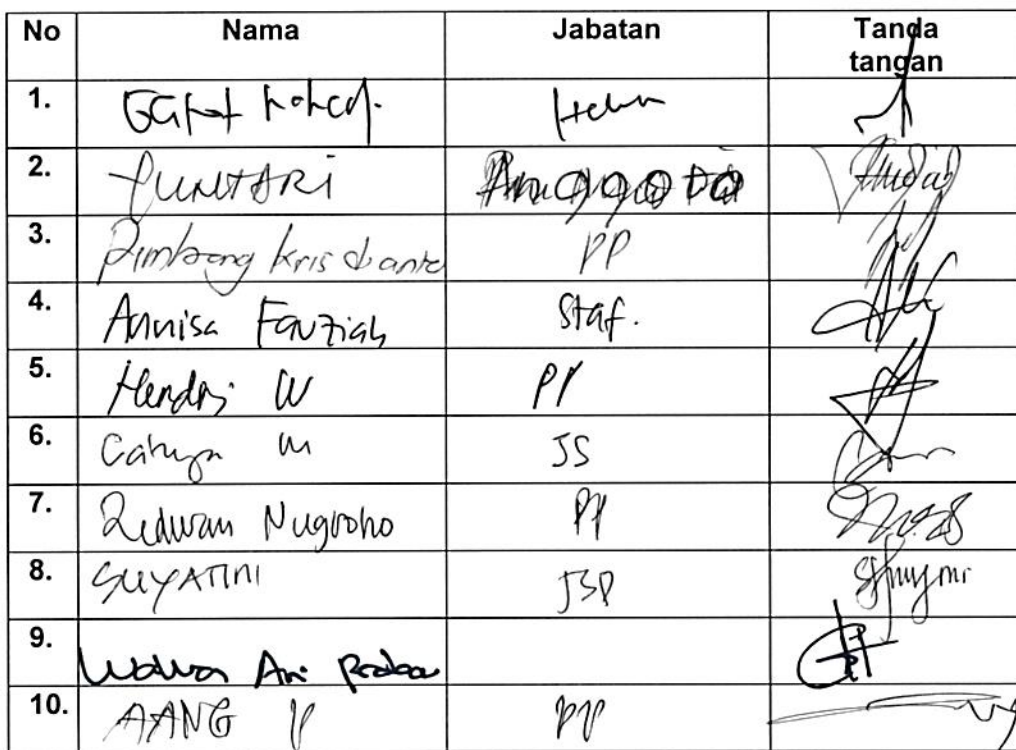 No Nama Jabatan Tanda
tangan
1.
2. YUNITARI Anggota
3. Bimbang Krisdianto PP
4. Annisa Fauziah Staf.
5. Hendri W PP
6. Cahya M JS
7. Ridwan Nugroho PP
8. SUYATINI JSP
9. Ari
10. AANG P PP